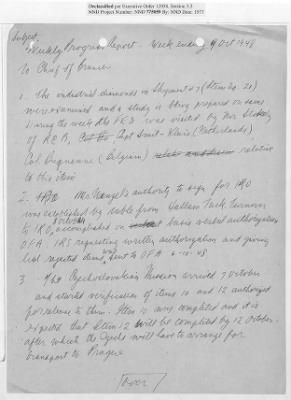 Declassified per Executive Order 12958, Section 3.5
NND Project Number: NND 775059 By: NND Date: 1977
Subject:
Weekly Progress Report. Week ending 9 Oct 1948
To Chief of Branch
1. The industrial diamonds in Shipment 27 (Item No. 21)
were examined and a study is being prepared on same
During the week the FED was visited by Mr.
of RDR, Capt Smit-Kleine (Netherlands)
Col. (Belgium) relative
to this item
2. Mr. authority to sign for IRO
was established by cable from
to IRO, accomplished on basis verbal authorization
OFA. IRS requesting written authorization and giving
list reported sent to OFA 6-10-48
3. The Czechoslovakian Mission arrived 7 October
and started verification of items 10 and 12 authorized
for release to them. Item 10 was completed and it is
expected that Item 12 will be completed by 12 October.
after which the Czechs will have to arrange for
transport to Prague
Over